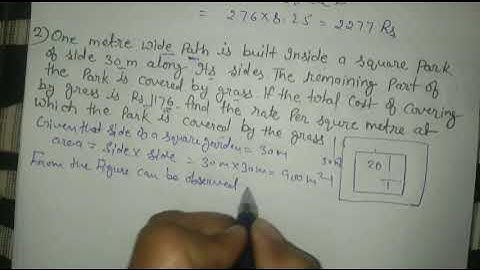 = 276×8.25 = 2277 Rs
2) One metre wide Path is built Inside a square Park
of side 30 m along Its sides. The remaining Part of
the Park is covered by grass. If the total cost of covering
by grass is Rs 1176. And the rate Per squre metre at
which the Park is covered by the grass
Given that side of a square garden = 30m
area = side × side = 30m × 30m = 900m²
From the Figure can be observed